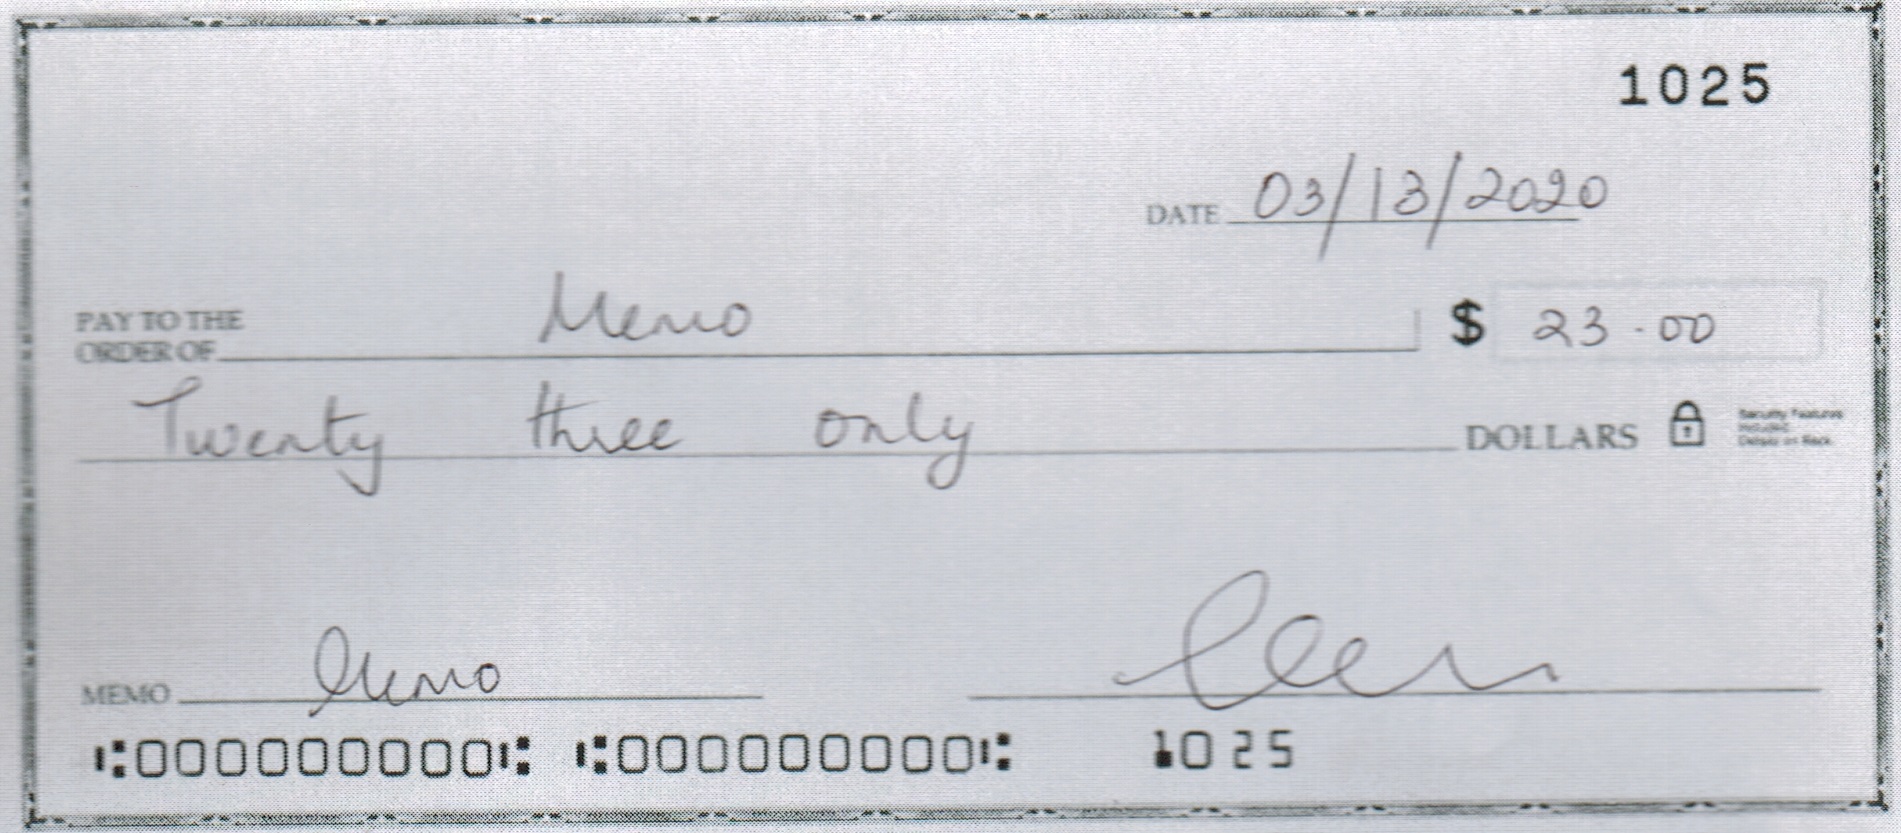 1025
DATE 03/13/2020
PAY TO THE
ORDER OF Memo $ 23.00
Twenty three only DOLLARS
Security Features
Included.
Details on Back.
MEMO Memo
⑆000000000⑆ ⑆000000000⑆ 1025